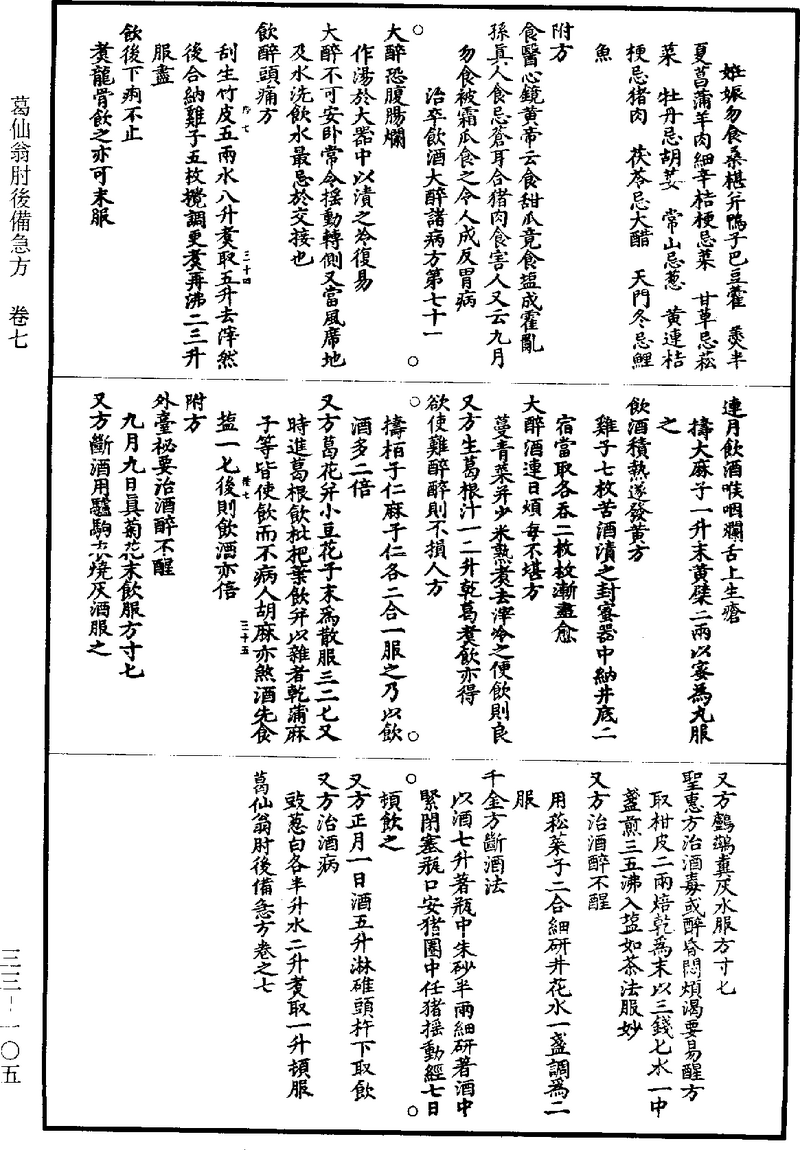 葛仙翁肘後備急方　卷七
妊娠勿食桑椹并鴨子巴豆藿　羮半
夏菖蒲羊肉細辛桔梗忌菜　甘草忌菘
菜　牡丹忌胡荽　常山忌葱　黄連桔
梗忌猪肉　茯苓忌大醋　天門冬忌鯉
魚
附方
食醫心鏡黄帝云食甜瓜竟食塩成霍亂
孫真人食忌蒼耳合猪肉食害人又云九月
勿食被霜瓜食之令人成反胃病
治卒飲酒大醉諸病方第七十一
大醉恐腹腸爛
作湯於大器中以漬之冷復易
大醉不可安卧常令揺動轉側又當風席地
及水洗飲水最忌於交接也
飲醉頭痛方
刮生竹皮五兩水八升煮取五升去滓然
後合納雞子五枚攪調更煮再沸二三升
服盡
飲後下痢不止
煮龍骨飲之亦可末服
連月飲酒喉咽爛舌上生瘡
擣大麻子一升末黄蘗二兩以蜜為丸服
之
飲酒積熱遂發黄方
雞子七枚苦酒漬之封蜜器中納井底二
宿當取各吞二枚枚漸盡愈
大醉酒連日煩毒不堪方
蔓青菜并少米熟煮去滓冷之便飲則良
又方生葛根汁一二升乾葛煮飲亦得
欲使雞醉醉則不損人方
擣栢子仁麻子仁各二合一服之乃以飲
酒多二倍
又方葛花并小豆花子末為散服三二七又
時進葛根飲枇杷葉飲并以雜者乾蒲麻
子等皆使飲而不病人胡麻亦煞酒先食
塩一七後則飲酒亦倍
附方
外臺祕要治酒醉不醒
九月九日真菊花末飲服方寸七
又方斷酒用驢駒衣燒灰酒服之
又方鸕鷀糞灰水服方寸七
聖惠方治酒毒或醉昏悶煩渴要易醒方
取柑皮二兩焙乾為末以三錢七水一中
盞煎三五沸入塩如茶法服妙
又方治酒醉不醒
用菘菜子二合細研井花水一盞調為二
服
千金方斷酒法
以酒七升著瓶中朱砂半兩細研著酒中
緊閉塞瓶口安猪圏中任猪揺動經七日
頓飲之
又方正月一日酒五升淋碓頭杵下取飲
又方治酒病
豉葱白各半升水二升煮取一升頓服
葛仙翁肘後備急方卷之七
三三－一〇五